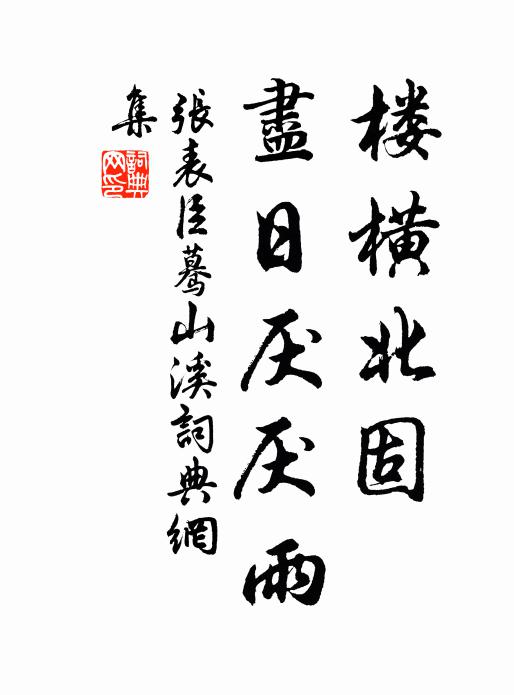 楼横北固
盡日厌厌雨
張表臣蓦山溪詞典網
集
詞典
网印